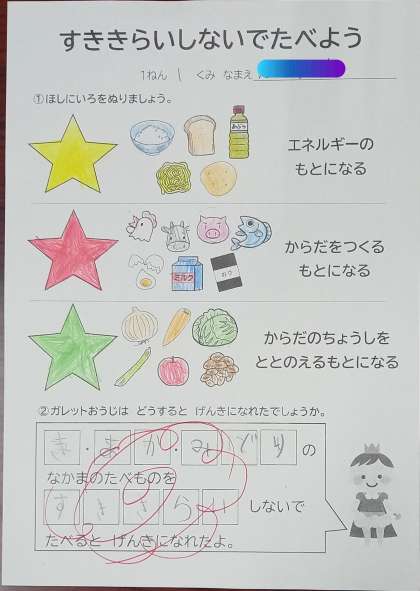 すききらいしないでたべよう
1ねん 1 くみ なまえ
①ほしにいろをぬりましょう。
あぶら
エネルギーの
もとになる
ミルク
のり
からだをつくる
もとになる
からだのちょうしを
ととのえるもとになる
②ガレットおうじは どうすると げんきになれたでしょうか。
き・あか・みどりの
なかまのたべものを
すききらいしないで
たべると げんきになれたよ。